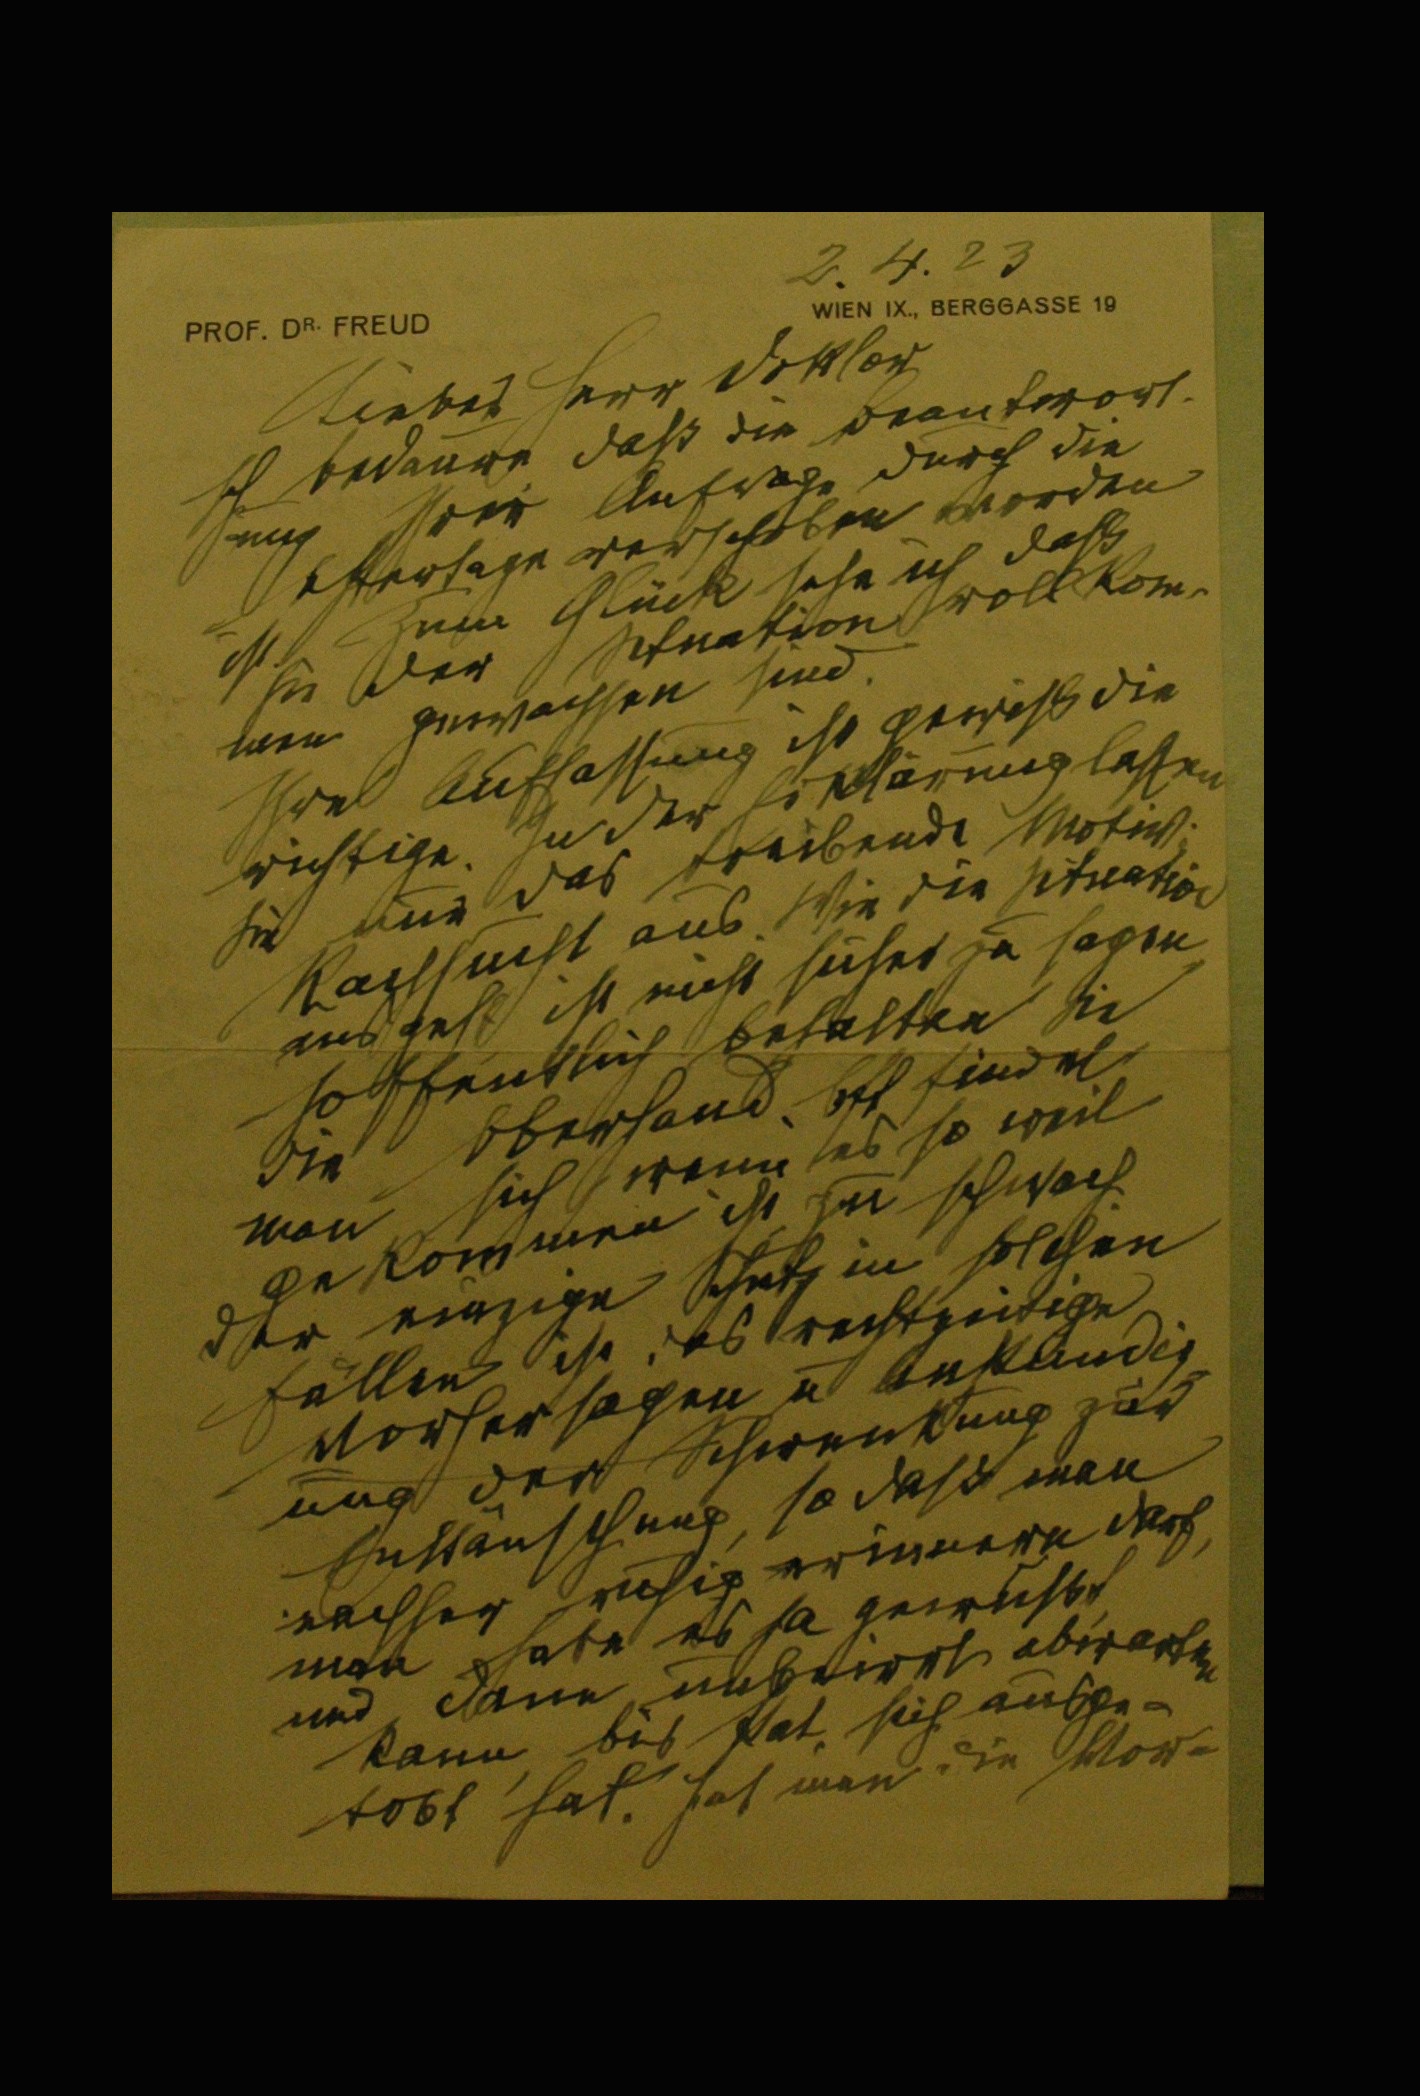 2. 4. 23
PROF. DR. FREUD
WIEN IX., BERGGASSE 19
Lieber Herr Doktor
Ich bedaure daß die Beantwort-
tung Ihrer Anfrage durch die
Ostertage verschoben worden
ist. Zum Glück sehe ich daß
Sie der Situation vollkom-
men gewachsen sind.
Ihre Auffassung ist gewiß die
richtige. In der Erklärung lassen
Sie nur das treibende Motiv:
Rachsucht aus. Wie die Situation
ausgeht ist nicht sicher zu sagen
hoffentlich behalten Sie
die Oberhand. Oft findet
man sich wenn es so weit
gekommen ist zu schwach
der einzige Schutz in solchen
Fällen ist, das rechtzeitige
Vorhersagen u Ankündig-
ung der Schwenkung zur
Enttäuschung, so daß man
nachher ruhig erinnern darf,
man habe es ja gewußt
und dann unbeirrt abwarten
kann, bis Pat. sich ausge-
tobt hat. Hat man die Vor-